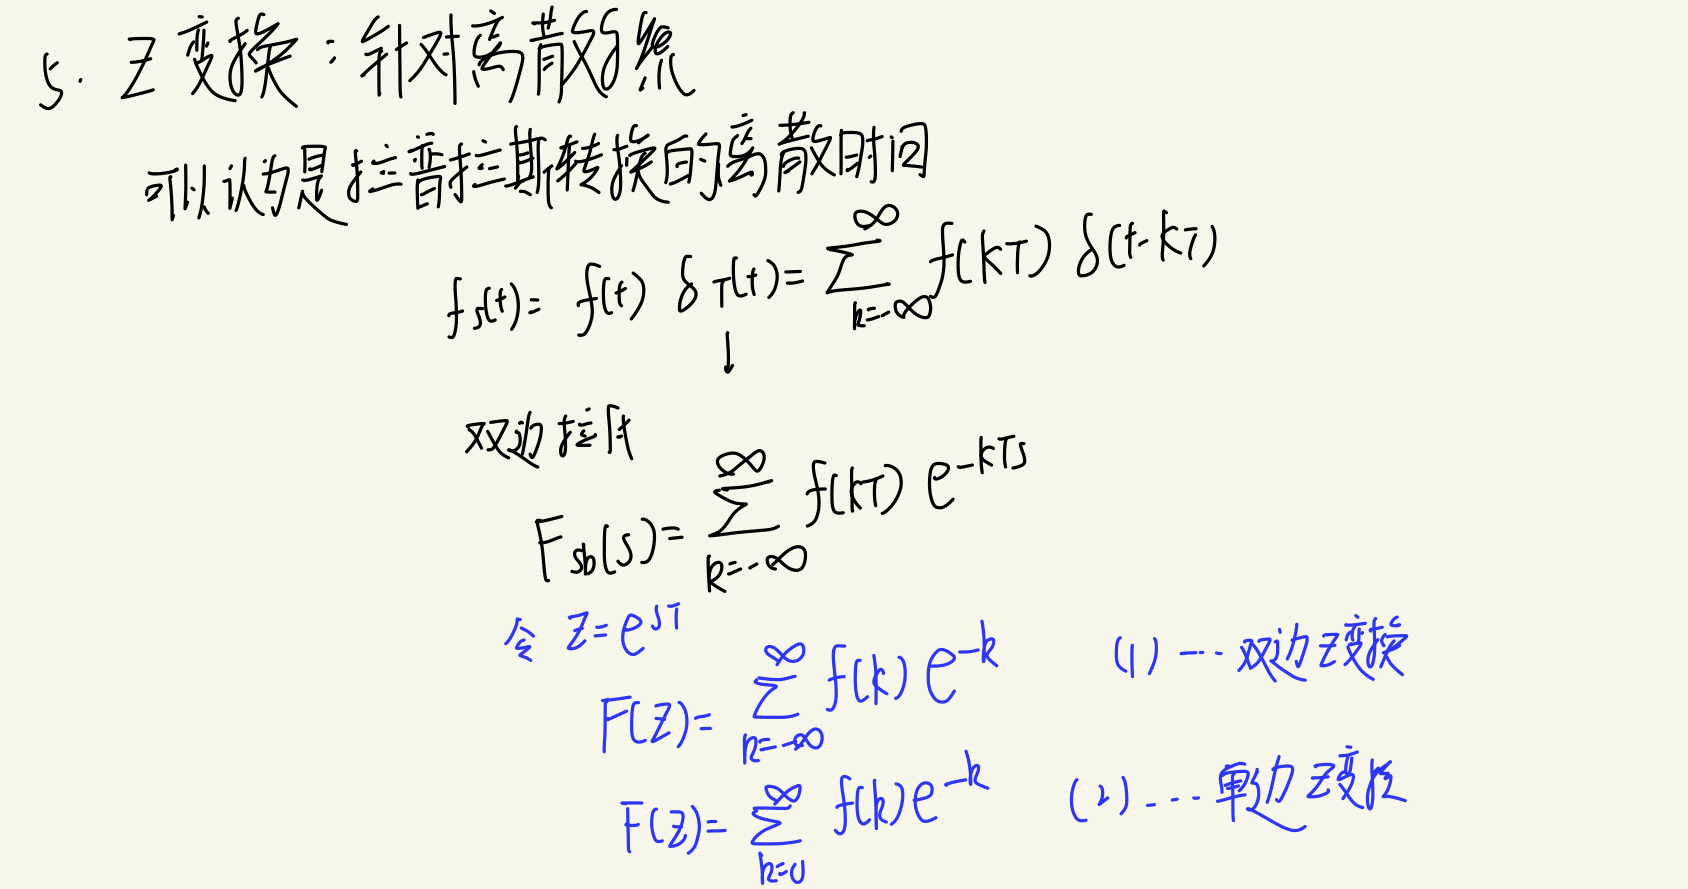 5. Z变换：针对离散系统
可以认为是拉普拉斯转换的离散时间
fs(t)= f(t) δT(t)= ∑_{k=-∞}^{∞} f(kT) δ(t-kT)
↓
双边拉氏
Fsb(s)= ∑_{k=-∞}^{∞} f(kT) e^{-kTs}
令 Z=e^{sT}
F(Z)= ∑_{k=-∞}^{∞} f(k) e^{-k} (1) ... 双边Z变换
F(Z)= ∑_{k=0}^{∞} f(k) e^{-k} (2) ... 单边Z变换